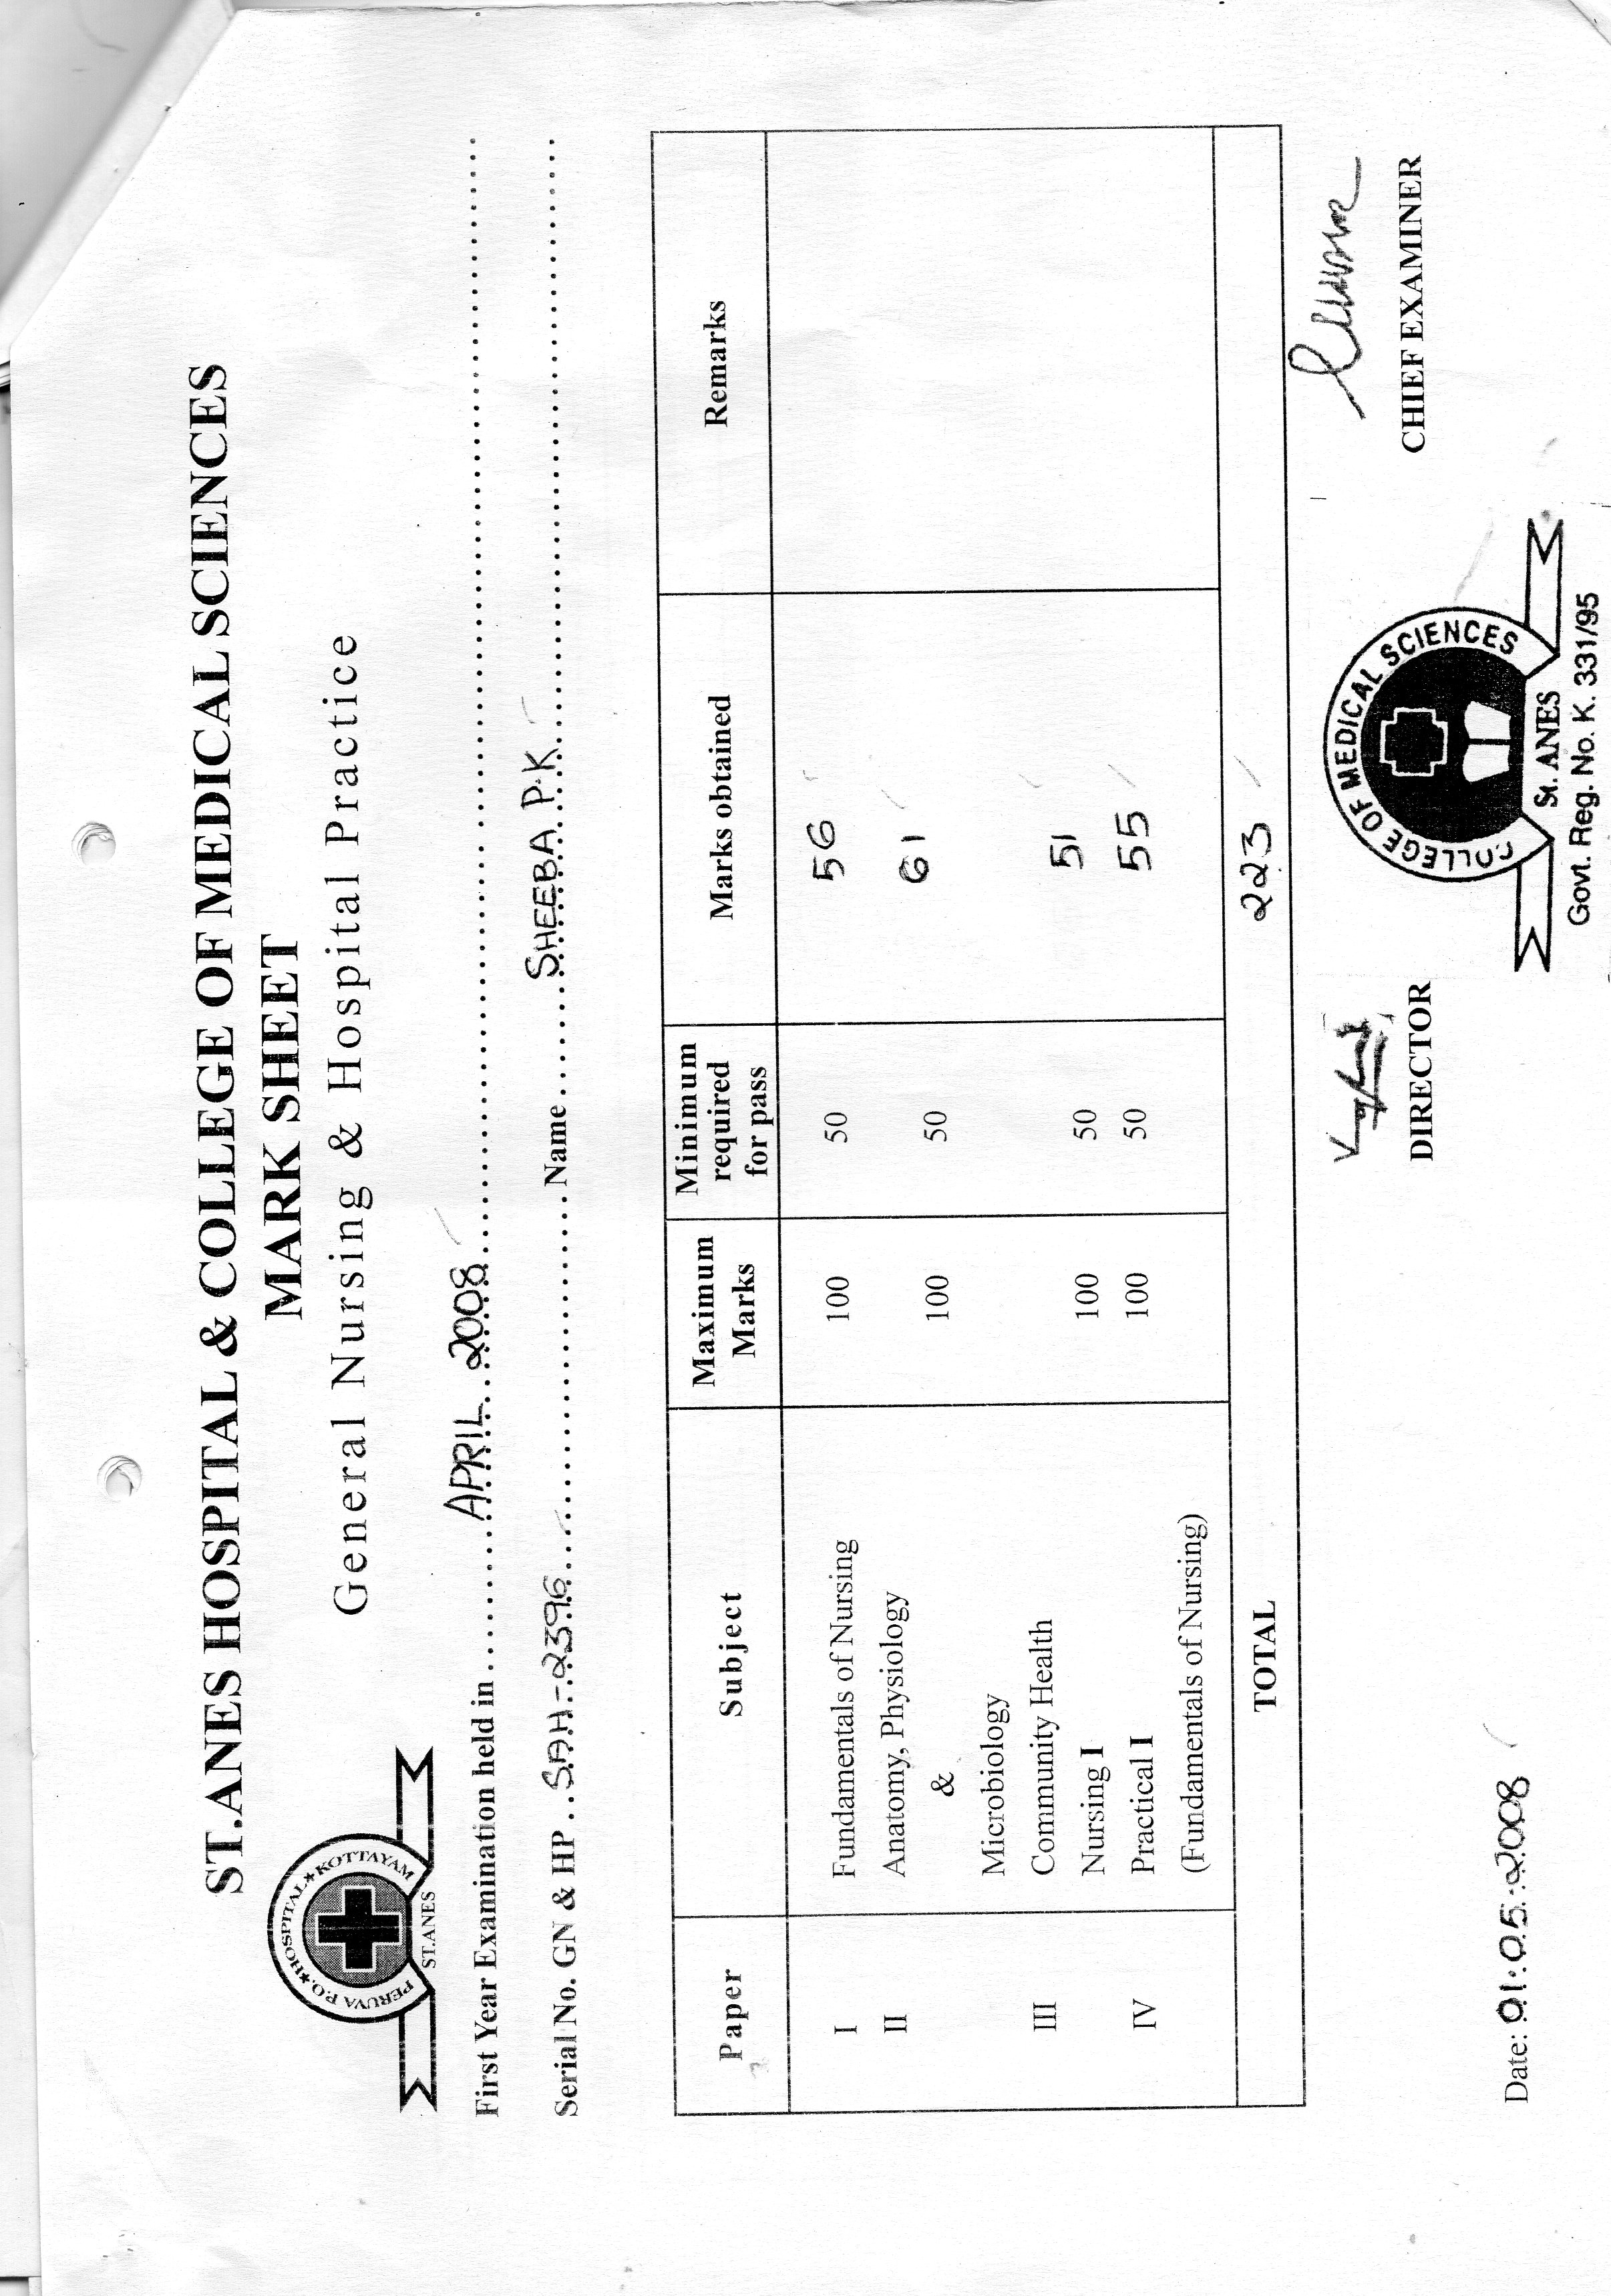 ST.ANES HOSPITAL & COLLEGE OF MEDICAL SCIENCES
MARK SHEET
General Nursing & Hospital Practice
PERUVA P.O.★HOSPITAL★KOTTAYAM
ST.ANES
First Year Examination held in APRIL 2008
Serial No. GN & HP SAH-2396 Name SHEEBA P.K
Paper Subject Maximum Marks Minimum required for pass Marks obtained Remarks
I Fundamentals of Nursing 100 50 56
II Anatomy, Physiology
& 100 50 61
Microbiology
III Community Health
Nursing I 100 50 51
IV Practical I 100 50 55
(Fundamentals of Nursing)
TOTAL 223
DIRECTOR
CHIEF EXAMINER
COLLEGE OF MEDICAL SCIENCES
St. ANES
Govt. Reg. No. K. 331/95
Date: 01.05.2008